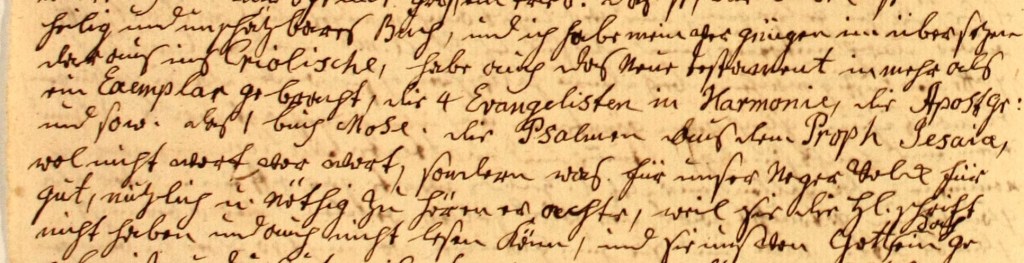 heilig und unschatzbares Buch, und ich habe mein vergnügen im übersetzen
daraus ins Criolische, habe auch das Neue testament in mehr als
ein Exemplar gebracht, die 4 Evangelisten in Harmonie, die Apostge:
und sow. das 1 buch Mose. die Psalmen aus dem Proph Jesaia,
wol nicht wort vor wort, sondern was für unser Neger Volck für
gut, nützlich u nöthig zu hören er achte, weil sie die Hl. schrift
nicht haben und auch nicht lesen könn, und sie uns von Gott